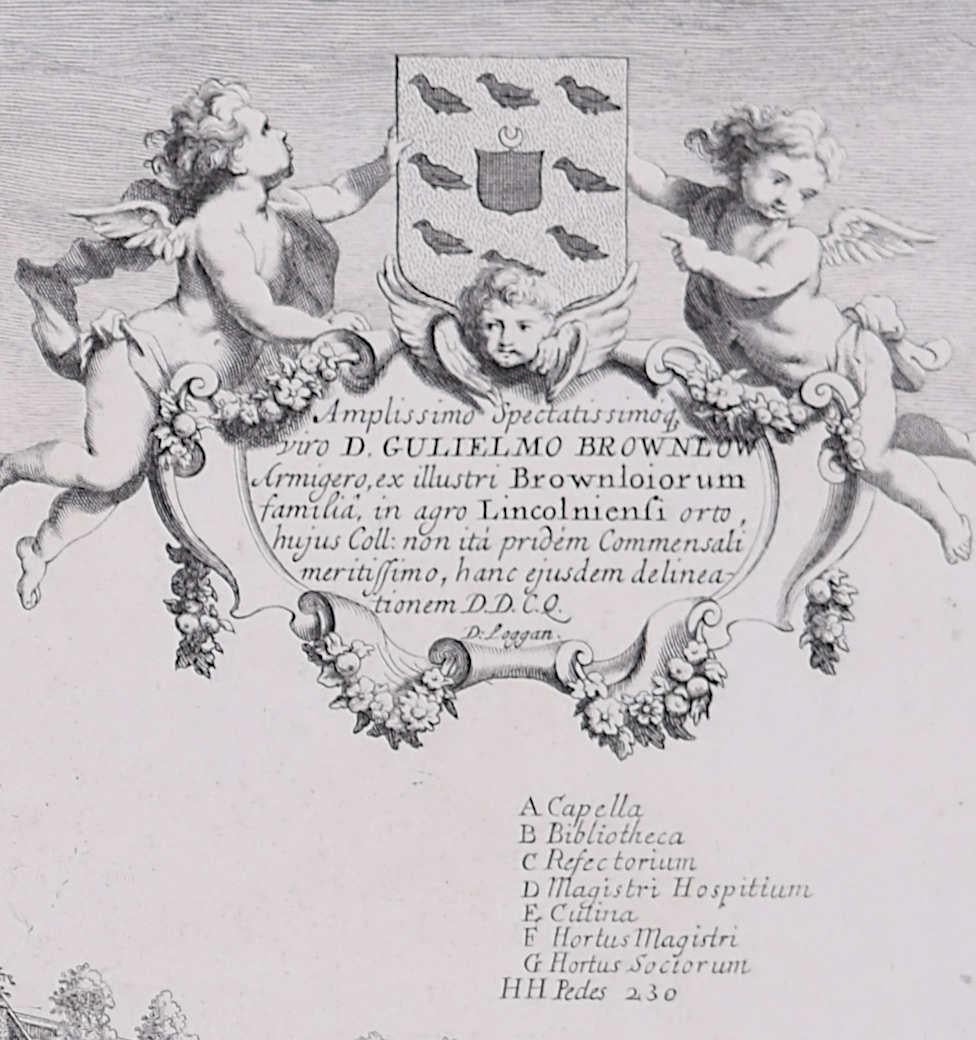 Amplissimo Spectatissimoq,
viro D. GULIELMO BROWNLOW
Armigero, ex illustri Brownloiorum
familiâ, in agro Lincolniensi orto,
hujus Coll: non itá pridèm Commensali
meritissimo, hanc ejusdem delinea-
tionem D.D.C.Q.
D: Loggan.
A Capella
B Bibliotheca
C Refectorium
D Magistri Hospitium
E Culina
F Hortus Magistri
G Hortus Sociorum
HH Pedes 230